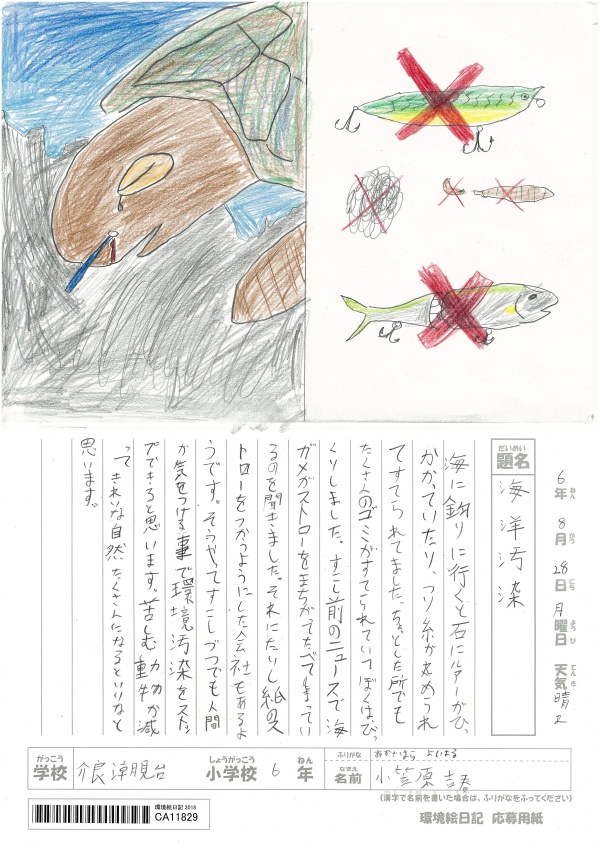 6年ねん 8月がつ 28日にち 月曜日ようび 天気てんき 晴
だいめい
題名 海洋汚染
海に釣りに行くと石にルアーがひっ
かかっていたり、つり糸が丸められ
てすてられてました。ちょいとした所でも
たくさんのゴミがすてられていてぼくは、びっ
くりしました。すこし前のニュースで海
ガメがストローをまちがってたべてしまってい
るのを聞きました。それにたいし紙のス
トローをつかうようにした会社もあるよ
うです。そうやってすこしづつでも人間
が気をつける事で環境汚染をストッ
プできると思います。苦しむ動物が減
ってきれいな自然たくさんになるといいなと
思います。
がっこう しょうがっこう ねん
学校 介良潮見台 小学校 6年
ふりがな おがさはら よしはる
なまえ
名前 小笠原
(漢字で名前を書いた場合は、ふりがなをふってください)
環境絵日記2018
CA11829
環境絵日記 応募用紙